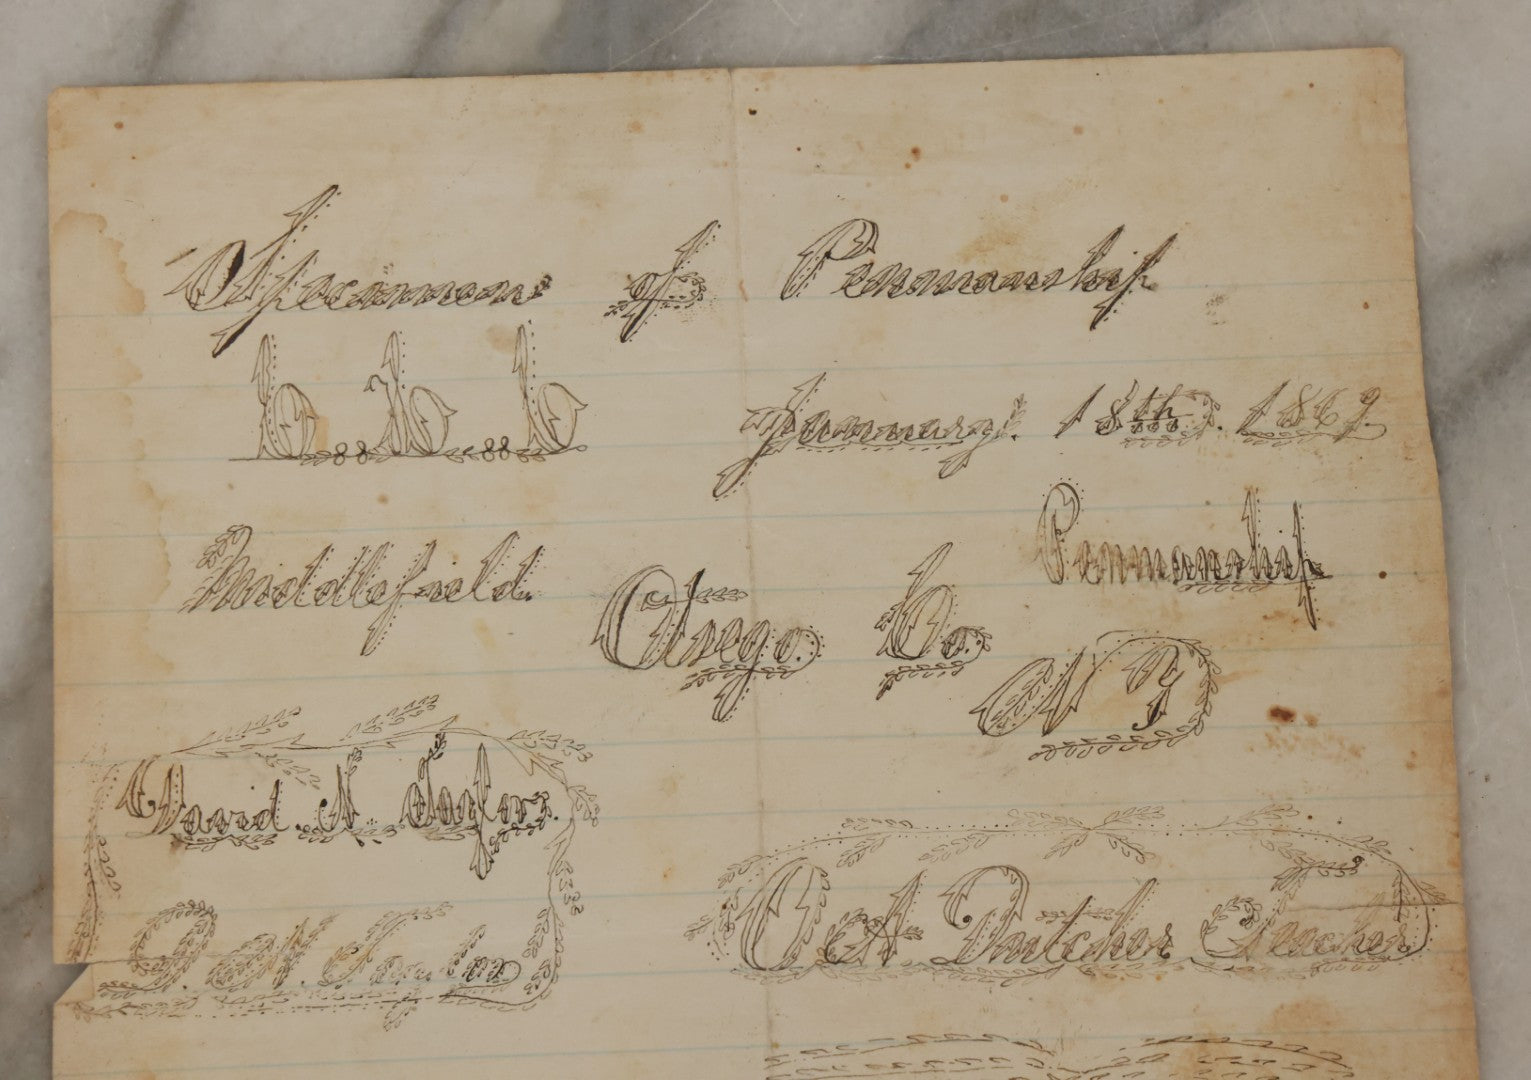 Specimens of Penmanship
b b b
January. 18th. 1869.
Middlefield. Otsego. Co. Penmanship
N Y
David. A. Taylor.
O A Butcher Teacher